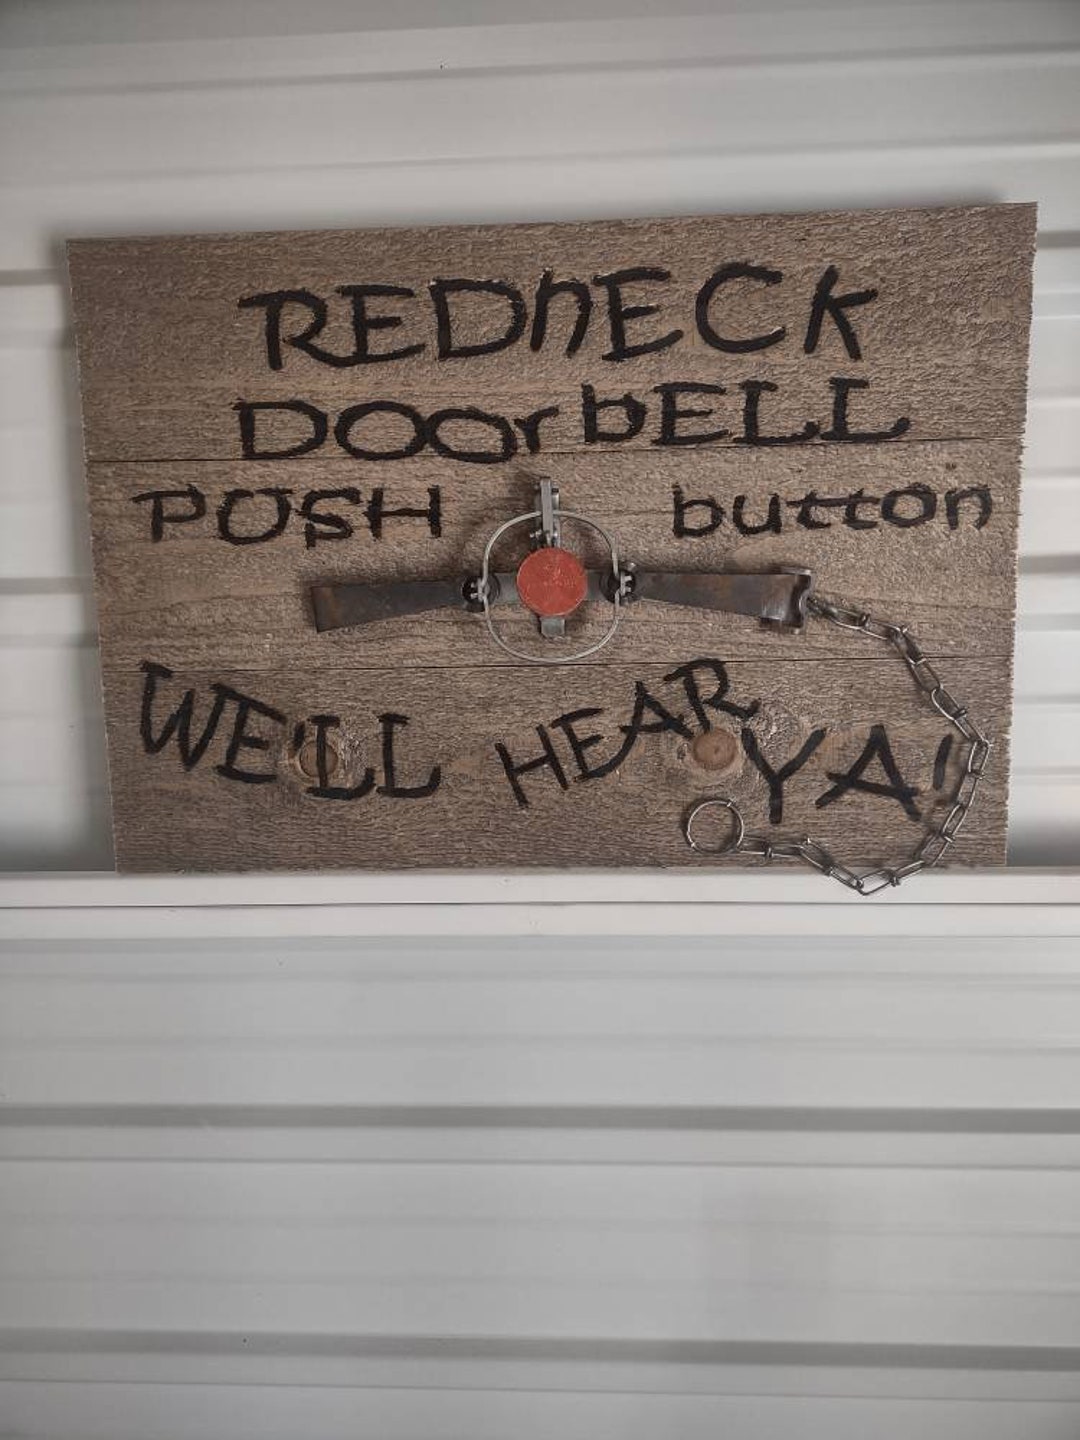 REDnECK
DOOrbELL
PUSH button
WE'LL HEAR YA!